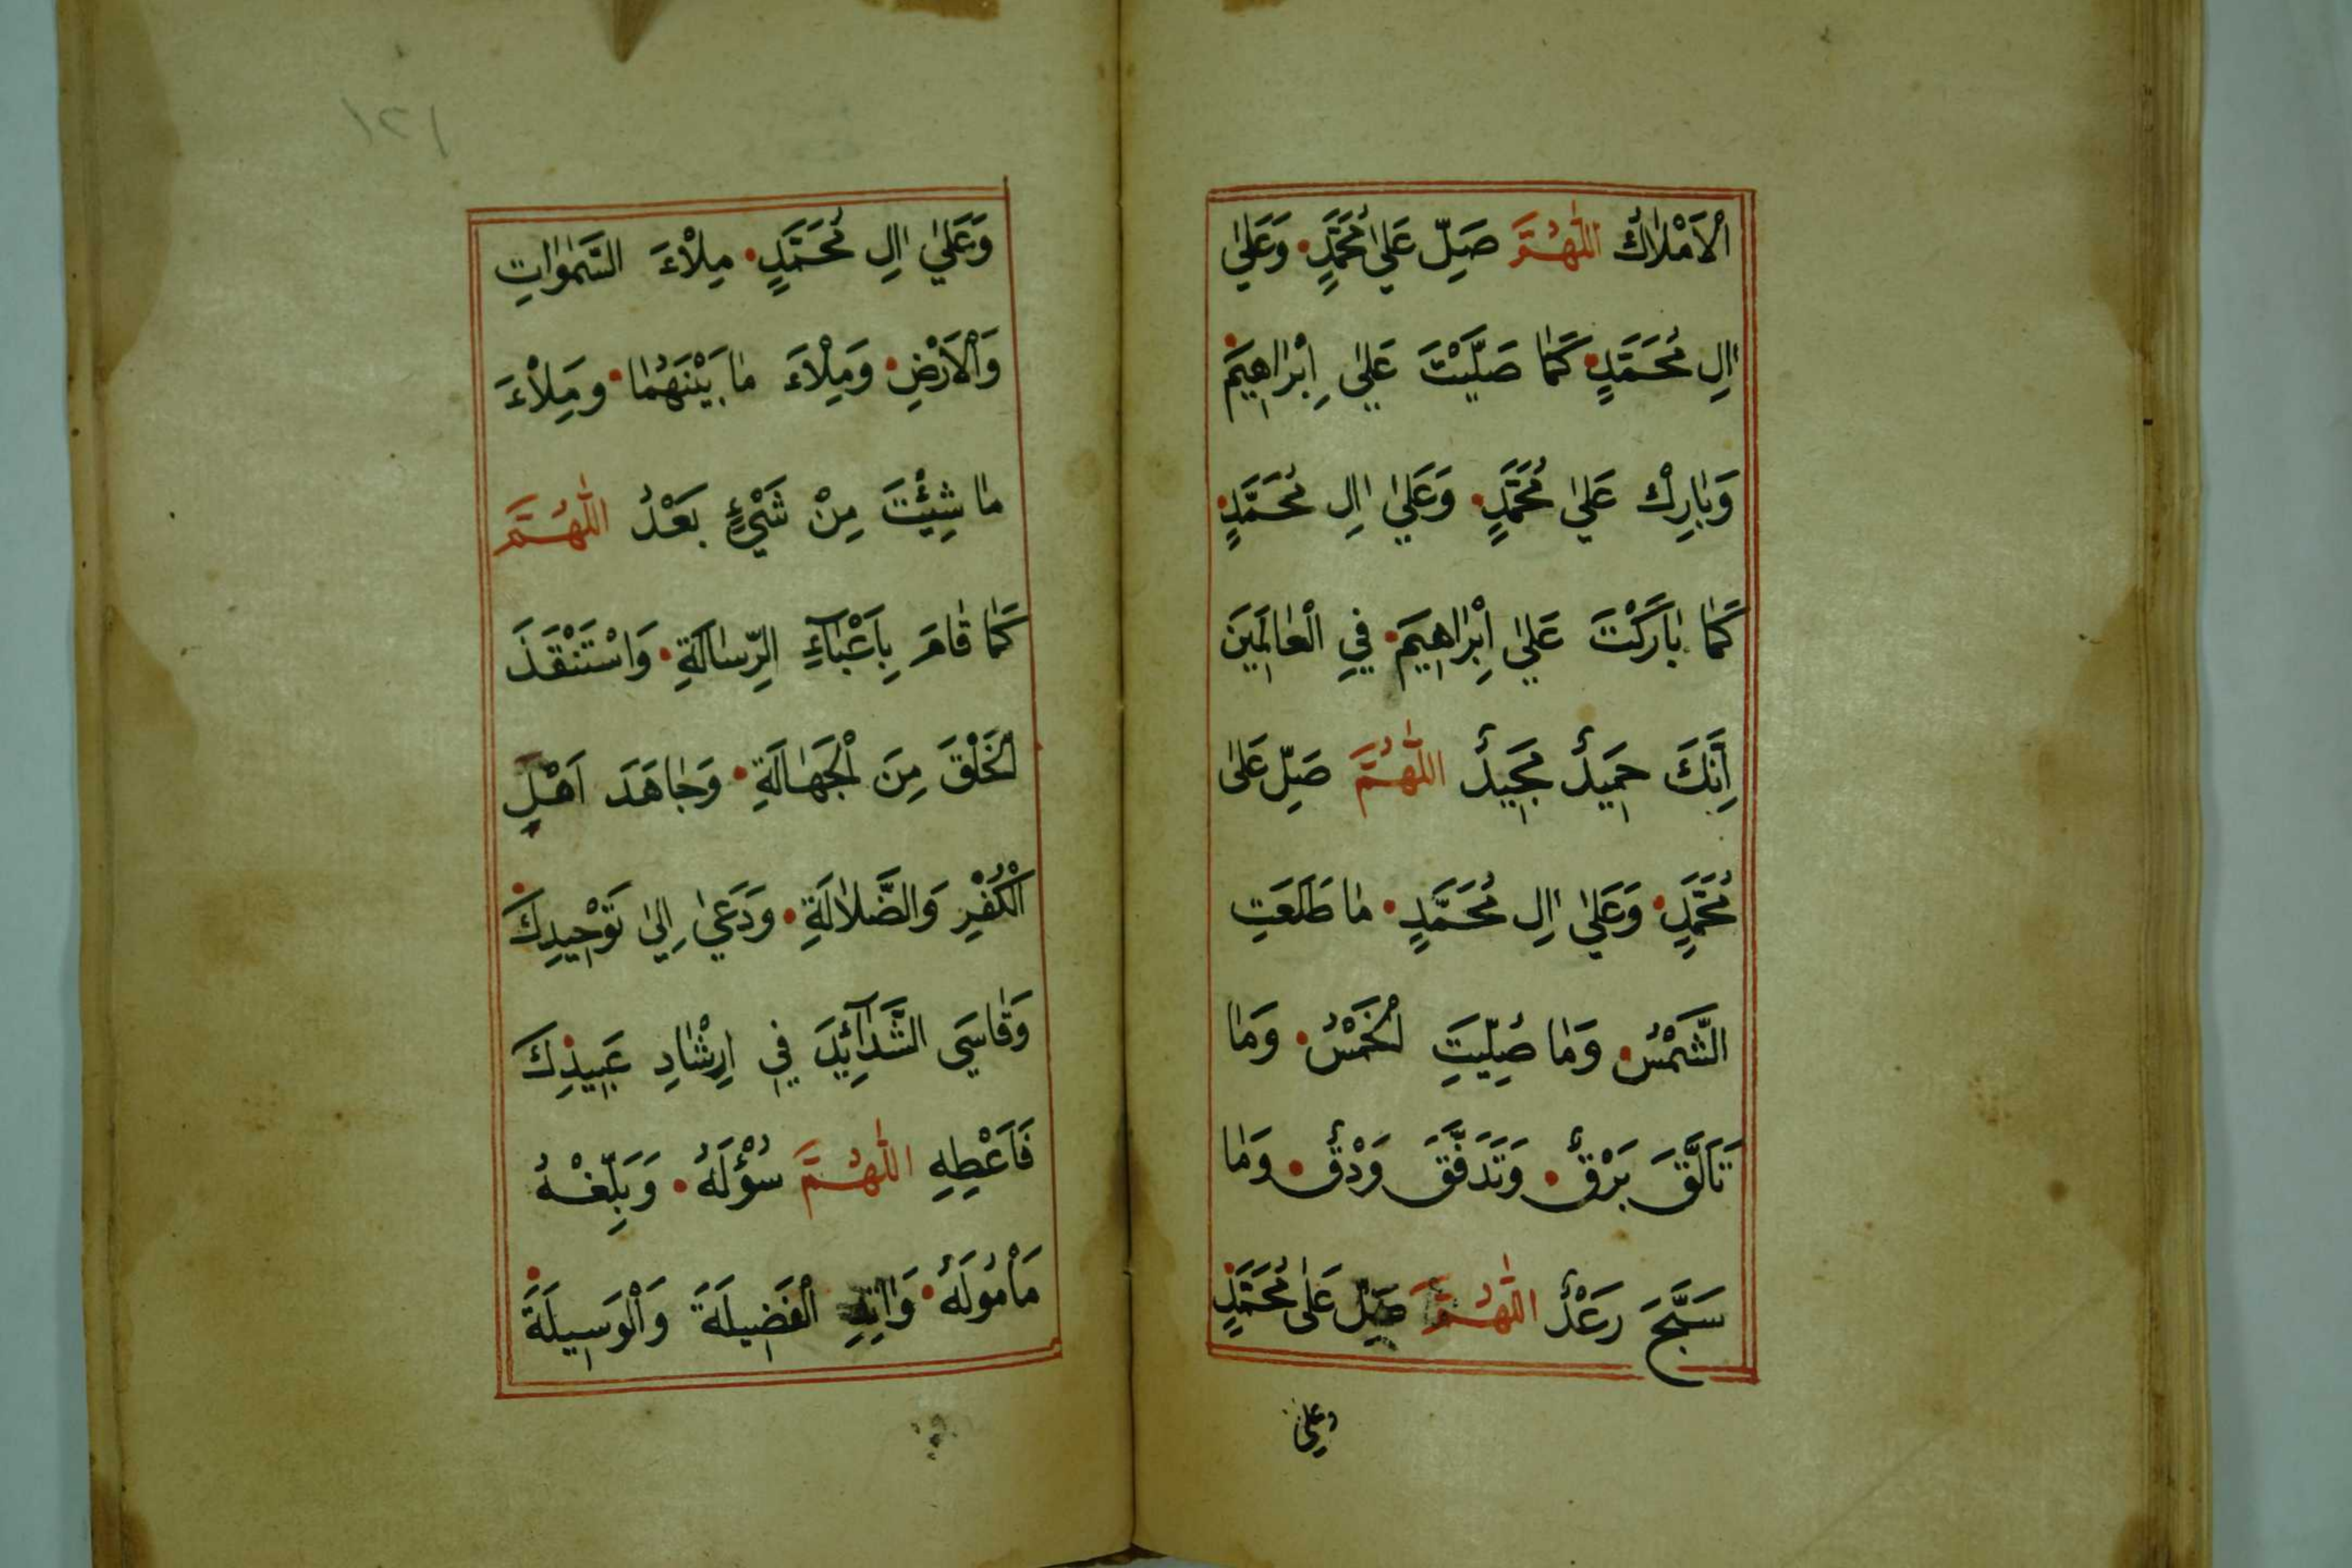 اْلاَمْلاٰكُ اَللّٰهُمَّ صَلِّ عَلىٰ مُحَمَّدٍ وَعَلىٰ
اٰلِ مُحَمَّدٍ كَمٰا صَلَّيْتَ عَليٰ اِبْرٰاهِيمَ
وَبٰارِكْ عَليٰ مُحَمَّدٍ وَعَليٰ اٰلِ مُحَمَّدٍ
كَمٰا بٰارَكْتَ عَليٰ اِبْرٰاهِيمَ فيِ الْعٰالَمِينَ
اِنَّكَ حَمِيدٌ مَجِيدٌ اَللّٰهُمَّ صَلِّ عَلىٰ
مُحَمَّدٍ وَعَليٰ اٰلِ مُحَمَّدٍ مٰا طَلَعَتِ
الشَّمْسُ وَمٰا صُلِّيَتِ الْخَمْسُ وَمٰا
تَاَلَّقَ بَرْقٌ وَتَدَفَّقَ وَدْقٌ وَمٰا
سَبَّحَ رَعْدٌ اَللّٰهُمَّ صَلِّ عَلىٰ مُحَمَّدٍ
وعلي
١٢١
وَعَليٰ اٰلِ مُحَمَّدٍ مِلْاءَ السَّمٰوٰاتِ
وَاْلاَرْضِ وَمِلْاءَ مٰا بَيْنَهُمٰا ومِلْاءَ
مٰا شِئْتَ مِنْ شَيْءٍ بَعْدُ اَللّٰهُمَّ
كَمٰا قٰامَ بِاَعْبٰاۤءِ الرِّسٰالَةِ وَاسْتَنْقَذَ
الْخَلْقَ مِنَ الْجَهٰالَةِ وَجٰاهَدَ اَهْلَ
الْكُفْرِ وَالضَّلاٰلَةِ وَدَعيٰ اِليٰ تَوْحِيدِكَ
وَقٰاسَي الشَّدٰاۤئِدَ فيِ اِرْشٰادِ عَبِيدِكَ
فَاَعْطِهِ اَللّٰهُمَّ سُؤْلَهُ وَبَلِّغْهُ
مَأْمُولَهُ وَاٰتِهِ الْفَضِيلَةَ وَالْوَسِيلَةَ